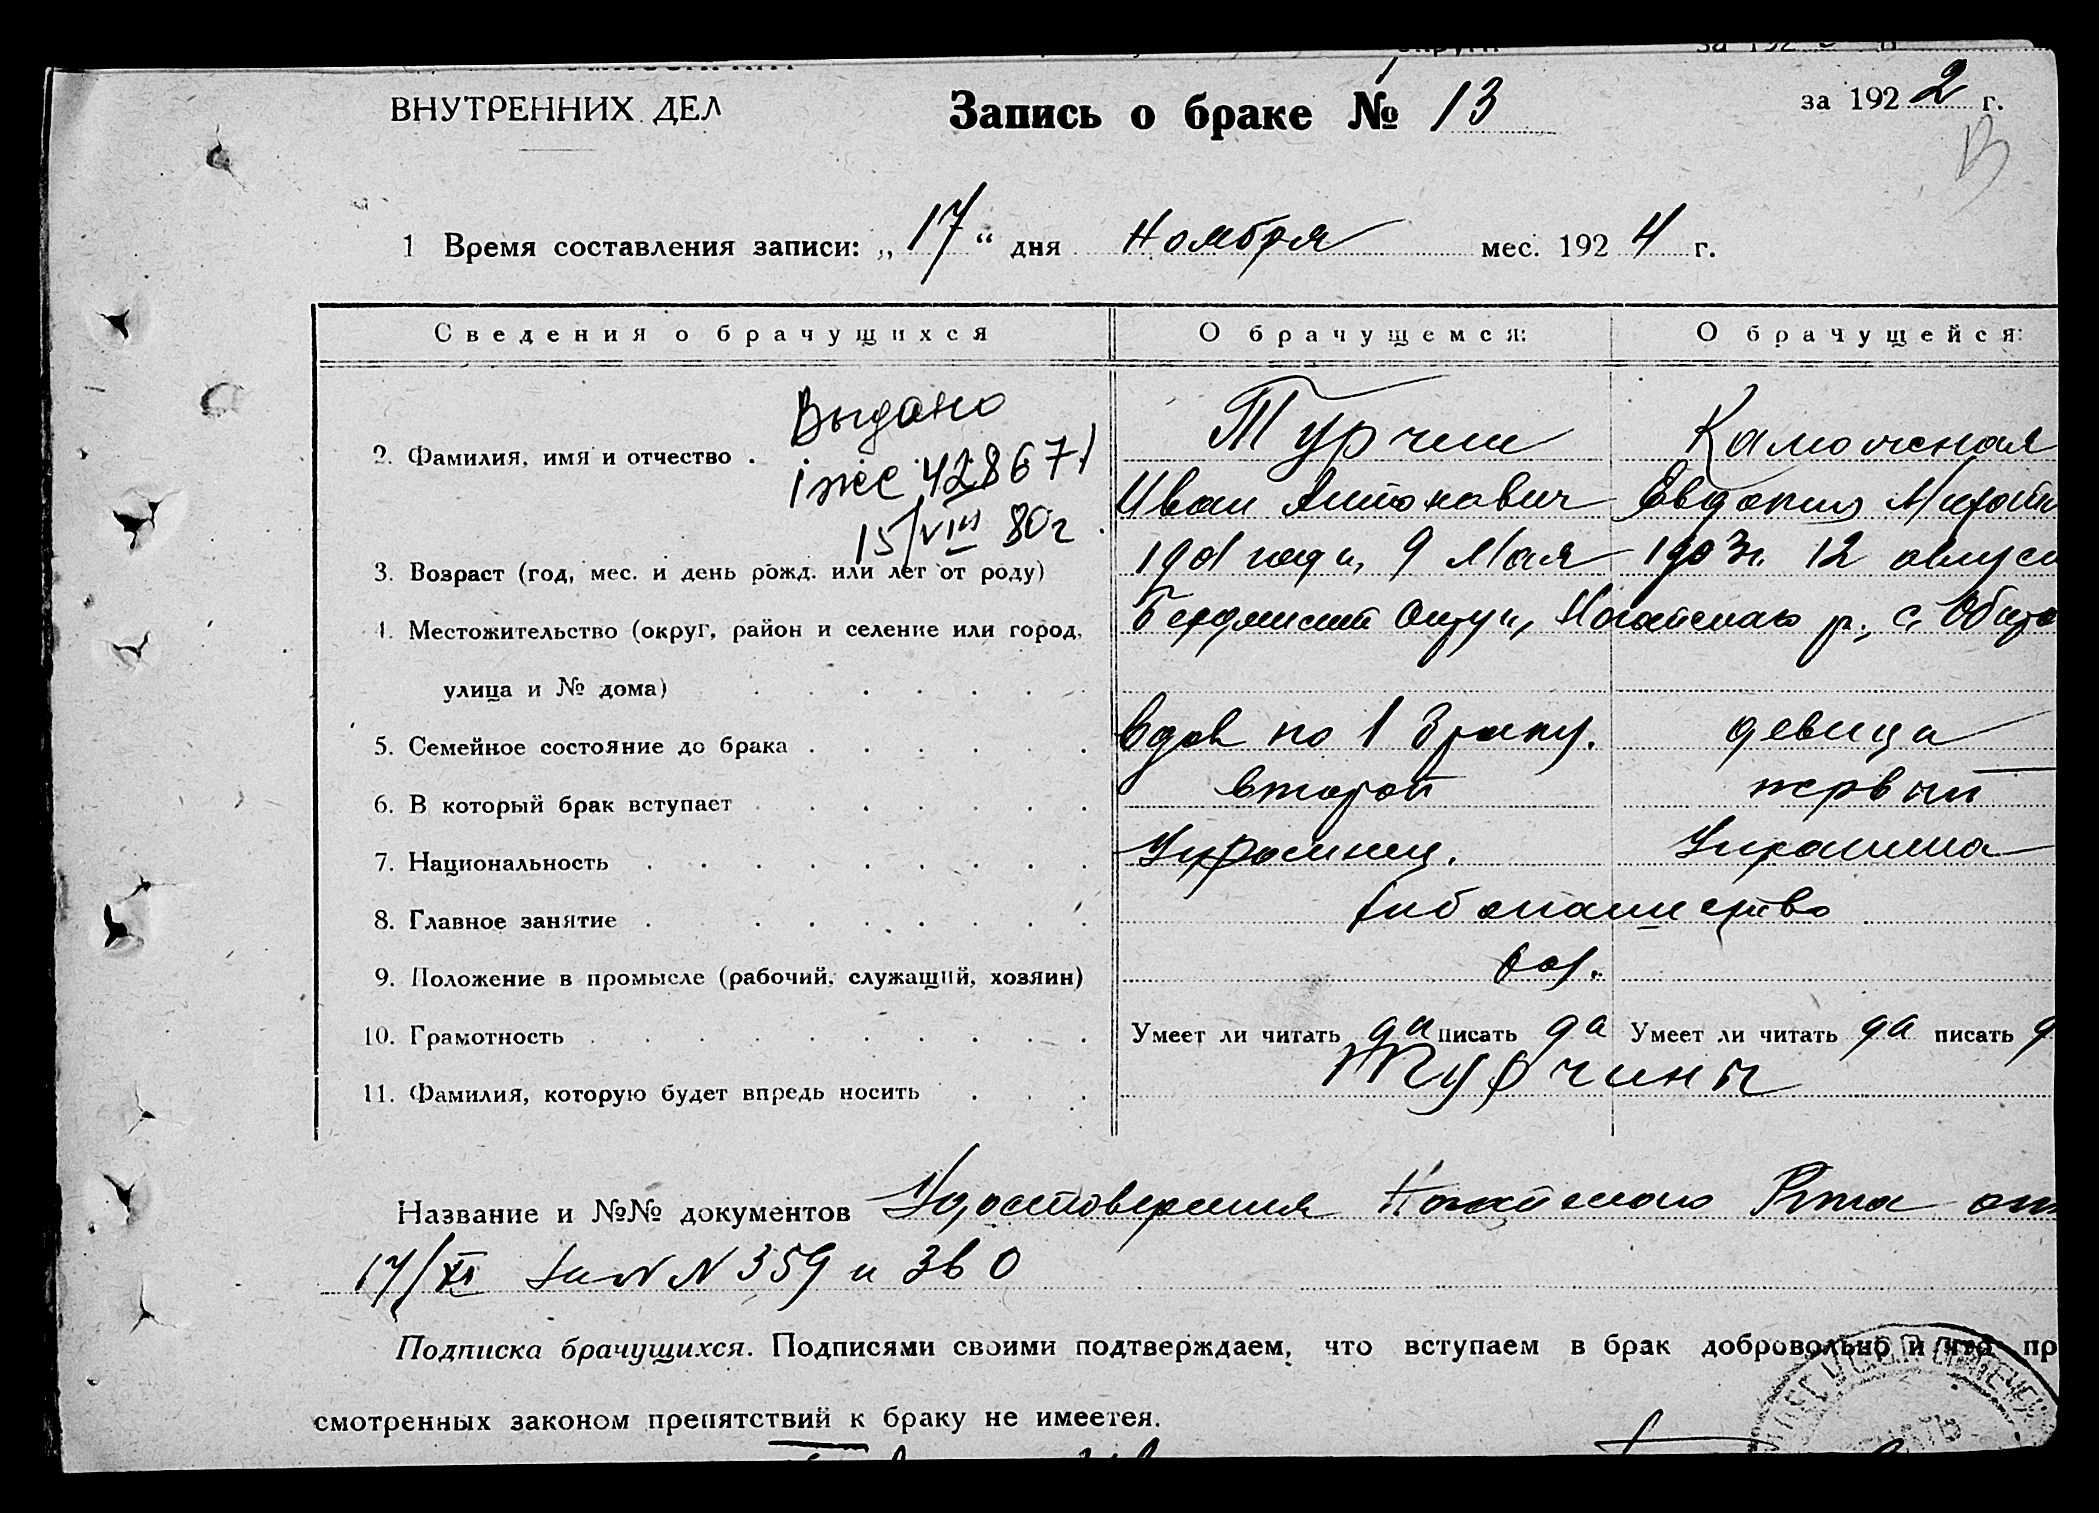 ВНУТРЕННИХ ДЕЛ
Запись о браке № 13
за 1922 г.
1 Время составления записи: „17“ дня Ноября мес. 1924 г.
Сведения о брачущихся О брачущемся: О брачущейся:
Выдано
428671
15/VIII 80г.
2. Фамилия, имя и отчество . Турчин
Иван Антонович Евдокия
3. Возраст (год, мес. и день рожд. или лет от роду) 1901 года, 9 Мая 1903г. 12
4. Местожительство (округ, район и селение или город, Бердянский р., с.
улица и № дома)
5. Семейное состояние до брака вдов по 1 браку. девица
6. В который брак вступает второй первый
7. Национальность Украинец. Украинка
8. Главное занятие хлебопашество
9. Положение в промысле (рабочий, служащий, хозяин) хоз.
10. Грамотность Умеет ли читать да писать да Умеет ли читать да писать
11. Фамилия, которую будет впредь носить Турчины
Название и №№ документов Удостоверения
17/XI N 359 и 360
Подписка брачущихся. Подписями своими подтверждаем, что вступаем в брак добровольно и что пр
смотренных законом препятствий к браку не имеется.